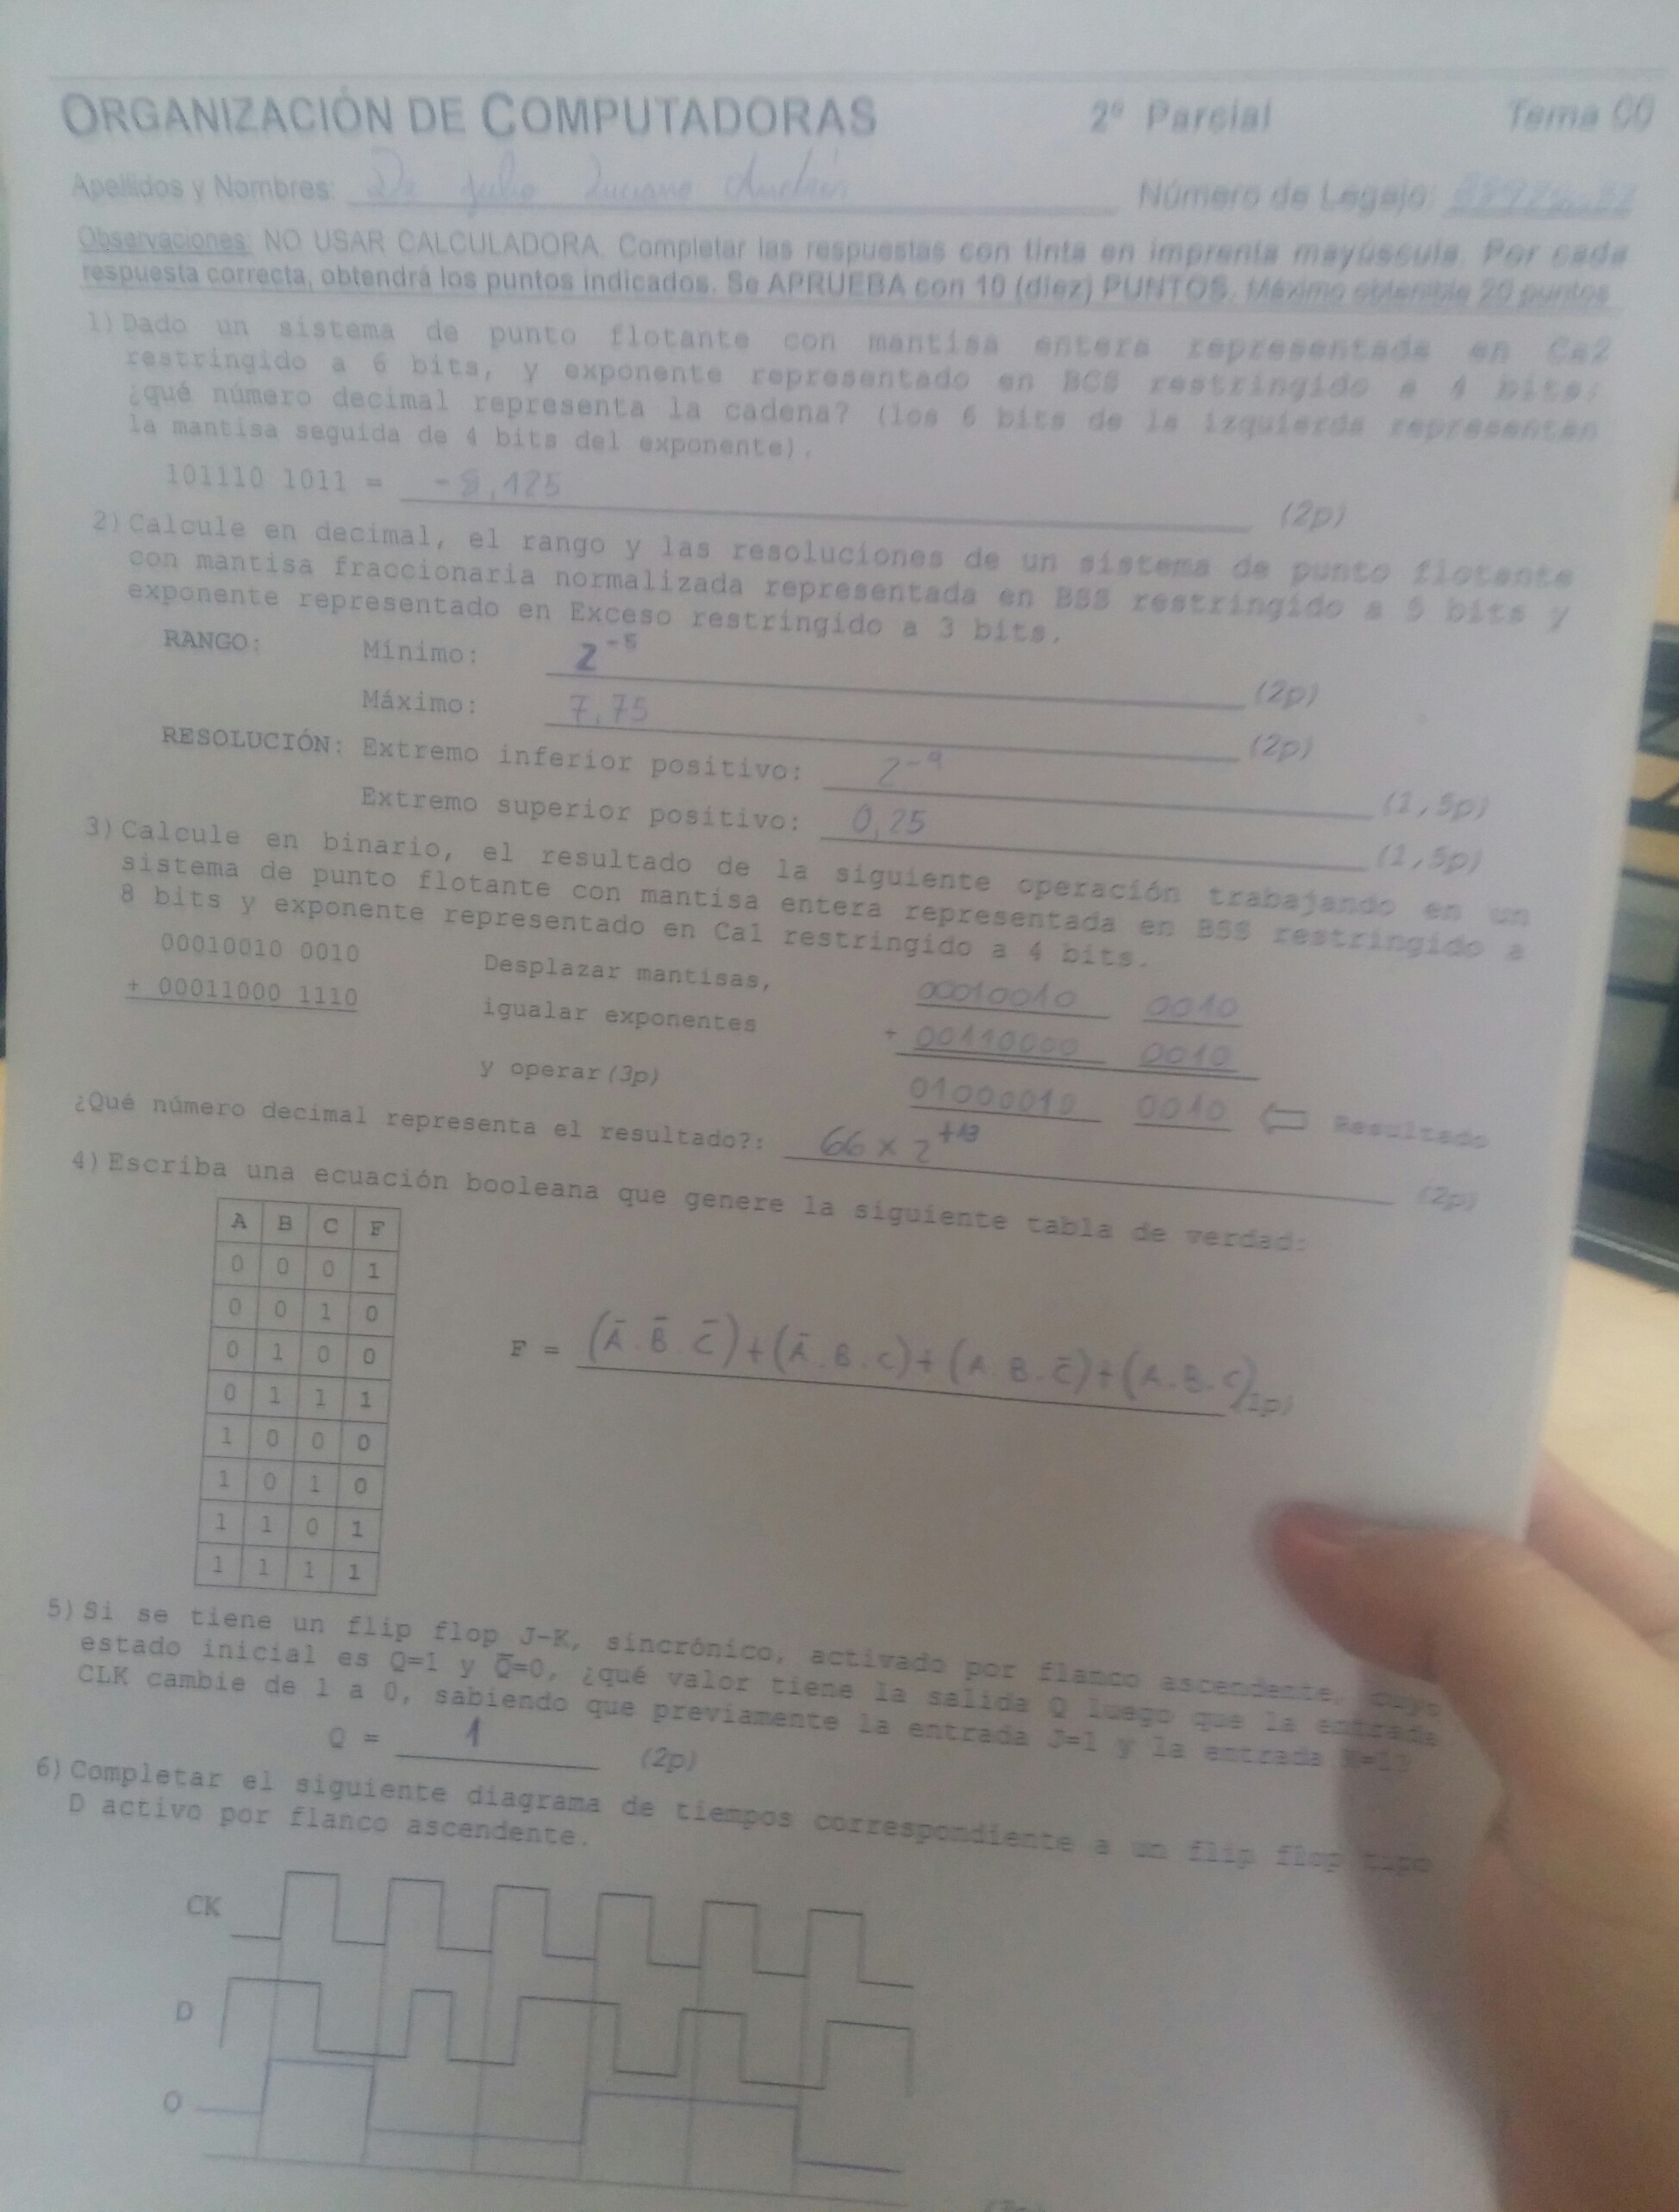 ORGANIZACIÓN DE COMPUTADORAS 2º Parcial Tema 00
Apellidos y Nombres: De Julio Luciano Número de Legajo:
Observaciones: NO USAR CALCULADORA. Completar las respuestas con tinta en imprenta mayúscula. Por cada
respuesta correcta, obtendrá los puntos indicados. Se APRUEBA con 10 (diez) PUNTOS. Máximo obtenible 20 puntos
1) Dado un sistema de punto flotante con mantisa entera representada en Ca2
restringido a 6 bits, y exponente representado en BCS restringido a 4 bits;
¿qué número decimal representa la cadena? (los 6 bits de la izquierda representan
la mantisa seguida de 4 bits del exponente).
101110 1011 = (2p)
2) Calcule en decimal, el rango y las resoluciones de un sistema de punto flotante
con mantisa fraccionaria normalizada representada en BSS restringido a 5 bits y
exponente representado en Exceso restringido a 3 bits.
RANGO: Mínimo: 2⁻⁵ (2p)
Máximo: 7,75 (2p)
RESOLUCIÓN: Extremo inferior positivo: 2⁻⁹ (1,5p)
Extremo superior positivo: 0,25 (1,5p)
3) Calcule en binario, el resultado de la siguiente operación trabajando en un
sistema de punto flotante con mantisa entera representada en BSS restringido a
8 bits y exponente representado en Ca1 restringido a 4 bits.
00010010 0010 Desplazar mantisas, 00010010 0010
+ 00011000 1110 igualar exponentes + 00110000 0010
y operar (3p) 01000010 0010 ⇐ Resultado
¿Qué número decimal representa el resultado?: 66 x 2 (2p)
4) Escriba una ecuación booleana que genere la siguiente tabla de verdad:
A B C F
0 0 0 1
0 0 1 0
0 1 0 0
0 1 1 1
1 0 0 0
1 0 1 0
1 1 0 1
1 1 1 1
F = (A̅.B̅.C̅)+(A̅.B.C)+(A.B.C̅)+(A.B.C)
5) Si se tiene un flip flop J-K, sincrónico, activado por flanco ascendente, cuyo
estado inicial es Q=1 y Q̅=0, ¿qué valor tiene la salida Q luego que la entrada
CLK cambie de 1 a 0, sabiendo que previamente la entrada J=1 y la entrada K=1?
Q = 1 (2p)
6) Completar el siguiente diagrama de tiempos correspondiente a un flip flop tipo
D activo por flanco ascendente.
CK
D
Q